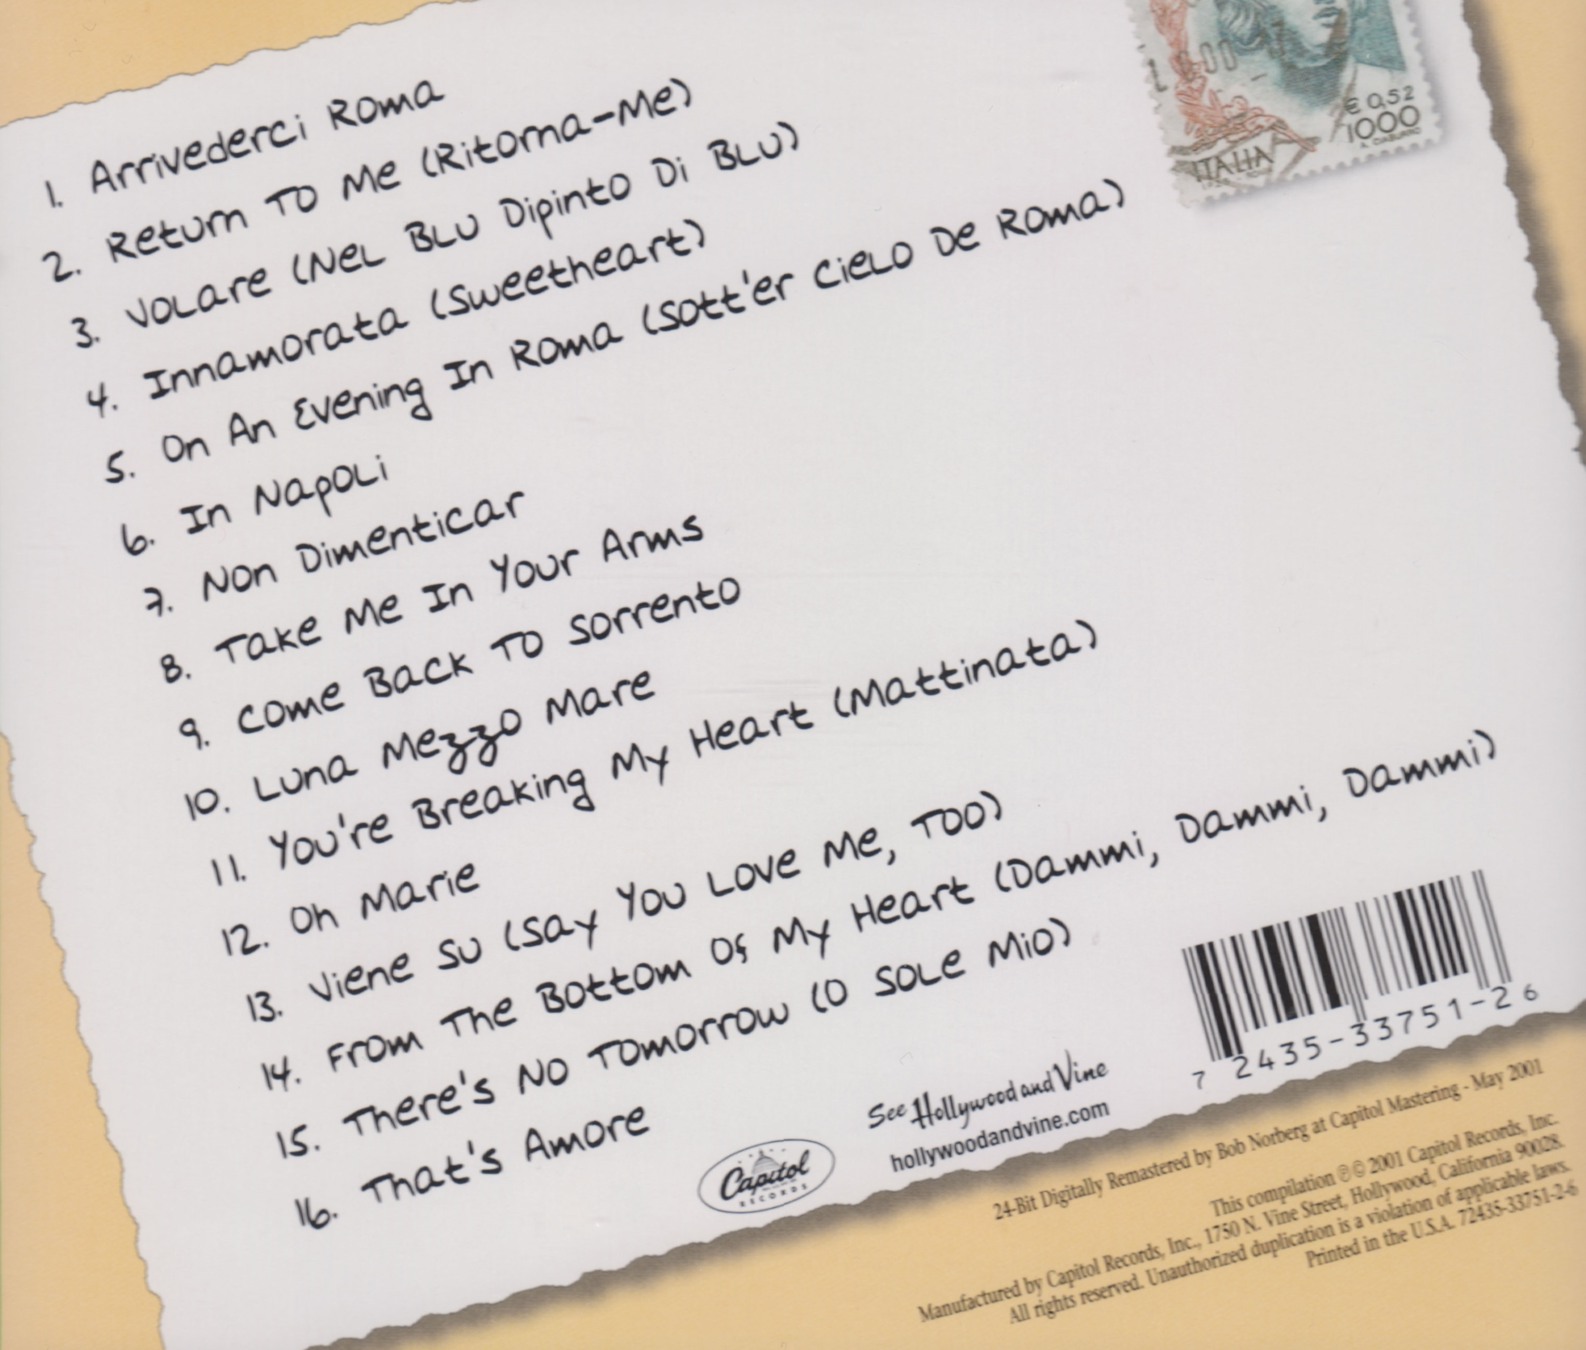 € 0,52
1000
ITALIA
1. Arrivederci Roma
2. Return To Me (Ritorna-Me)
3. Volare (Nel Blu Dipinto Di Blu)
4. Innamorata (Sweetheart)
5. On An Evening In Roma (Sott'er Cielo De Roma)
6. In Napoli
7. Non Dimenticar
8. Take Me In Your Arms
9. Come Back To Sorrento
10. Luna Mezzo Mare
11. You're Breaking My Heart (Mattinata)
12. Oh Marie
13. Viene Su (Say You Love Me, Too)
14. From The Bottom Of My Heart (Dammi, Dammi, Dammi)
15. There's No Tomorrow (O Sole Mio)
16. That's Amore
Capitol
RECORDS
See Hollywood and Vine
hollywoodandvine.com
7 2435-33751-2 6
24-Bit Digitally Remastered by Bob Norberg at Capitol Mastering - May 2001
This compilation ℗© 2001 Capitol Records, Inc.
Manufactured by Capitol Records, Inc., 1750 N. Vine Street, Hollywood, California 90028.
All rights reserved. Unauthorized duplication is a violation of applicable laws.
Printed in the U.S.A. 72435-33751-2-6